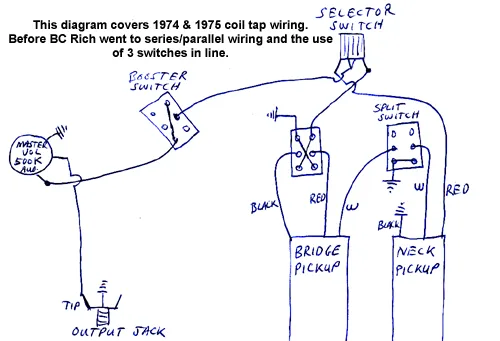 This diagram covers 1974 & 1975 coil tap wiring.
Before BC Rich went to series/parallel wiring and the use
of 3 switches in line.
SELECTOR
SWITCH
BOOSTER
SWITCH
SPLIT
SWITCH
MASTER
VOL
500K
AUD.
BLACK
RED
W
BLACK
W
RED
BRIDGE
PICKUP
NECK
PICKUP
TIP
OUTPUT JACK